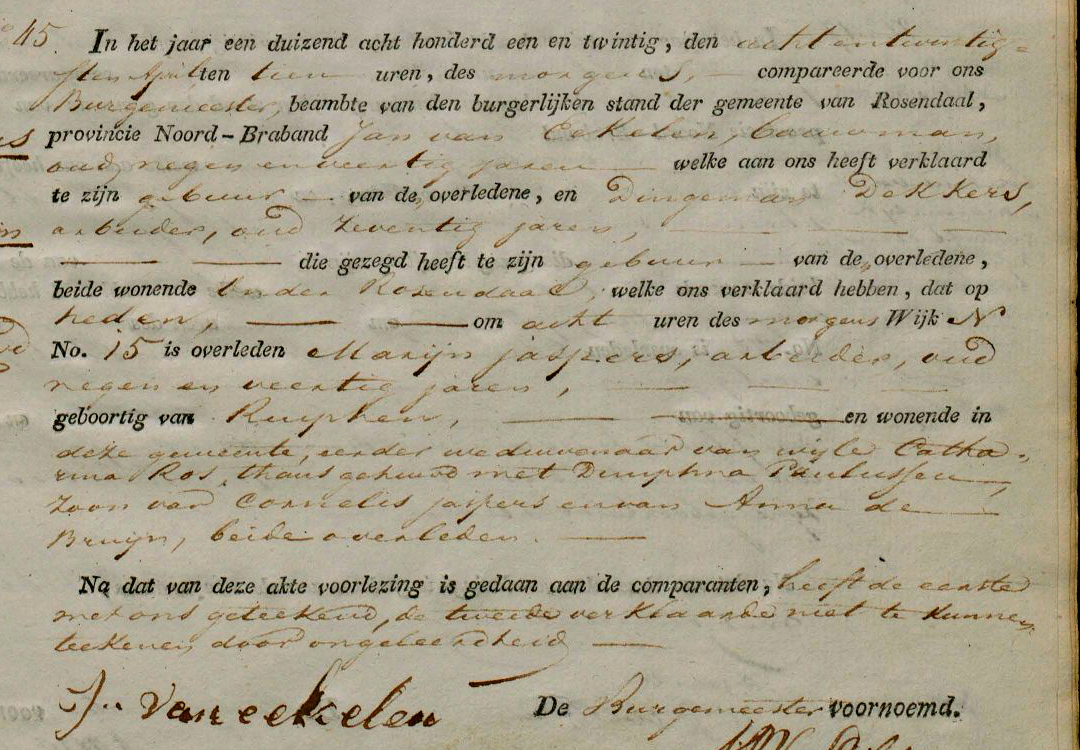 45. In het jaar een duizend acht honderd een en twintig, den acht en twintig-
sten April ten tien uren, des morgens, compareerde voor ons
Burgemeester, beambte van den burgerlijken stand der gemeente van Rosendaal,
provincie Noord-Braband Jan van Eekelen, bouwman,
oud negen en veertig jaren welke aan ons heeft verklaard
te zijn gebuur van de overledene, en Dingeman Dekkers,
arbeider, oud zeventig jaren,
die gezegd heeft te zijn gebuur van de overledene,
beide wonende onder Rosendaal, welke ons verklaard hebben, dat op
heden, om acht uren des morgens Wijk N
No. 15 is overleden Marijn jaspers, arbeider, oud
negen en veertig jaren,
geboortig van Rucphen, en wonende in
deze gemeente, eerder weduwenaar van wijle Catha-
rina Ros, thans gehuwd met Dimphna Paulussen,
zoon van Cornelis jaspers en van Anna de
Bruijn, beide overleden.
Na dat van deze akte voorlezing is gedaan aan de comparanten, heeft de eerste
met ons geteekend, de tweede verklaarde niet te kunnen
teekenen door ongeleerdheid
J. van eekelen De Burgemeester voornoemd.